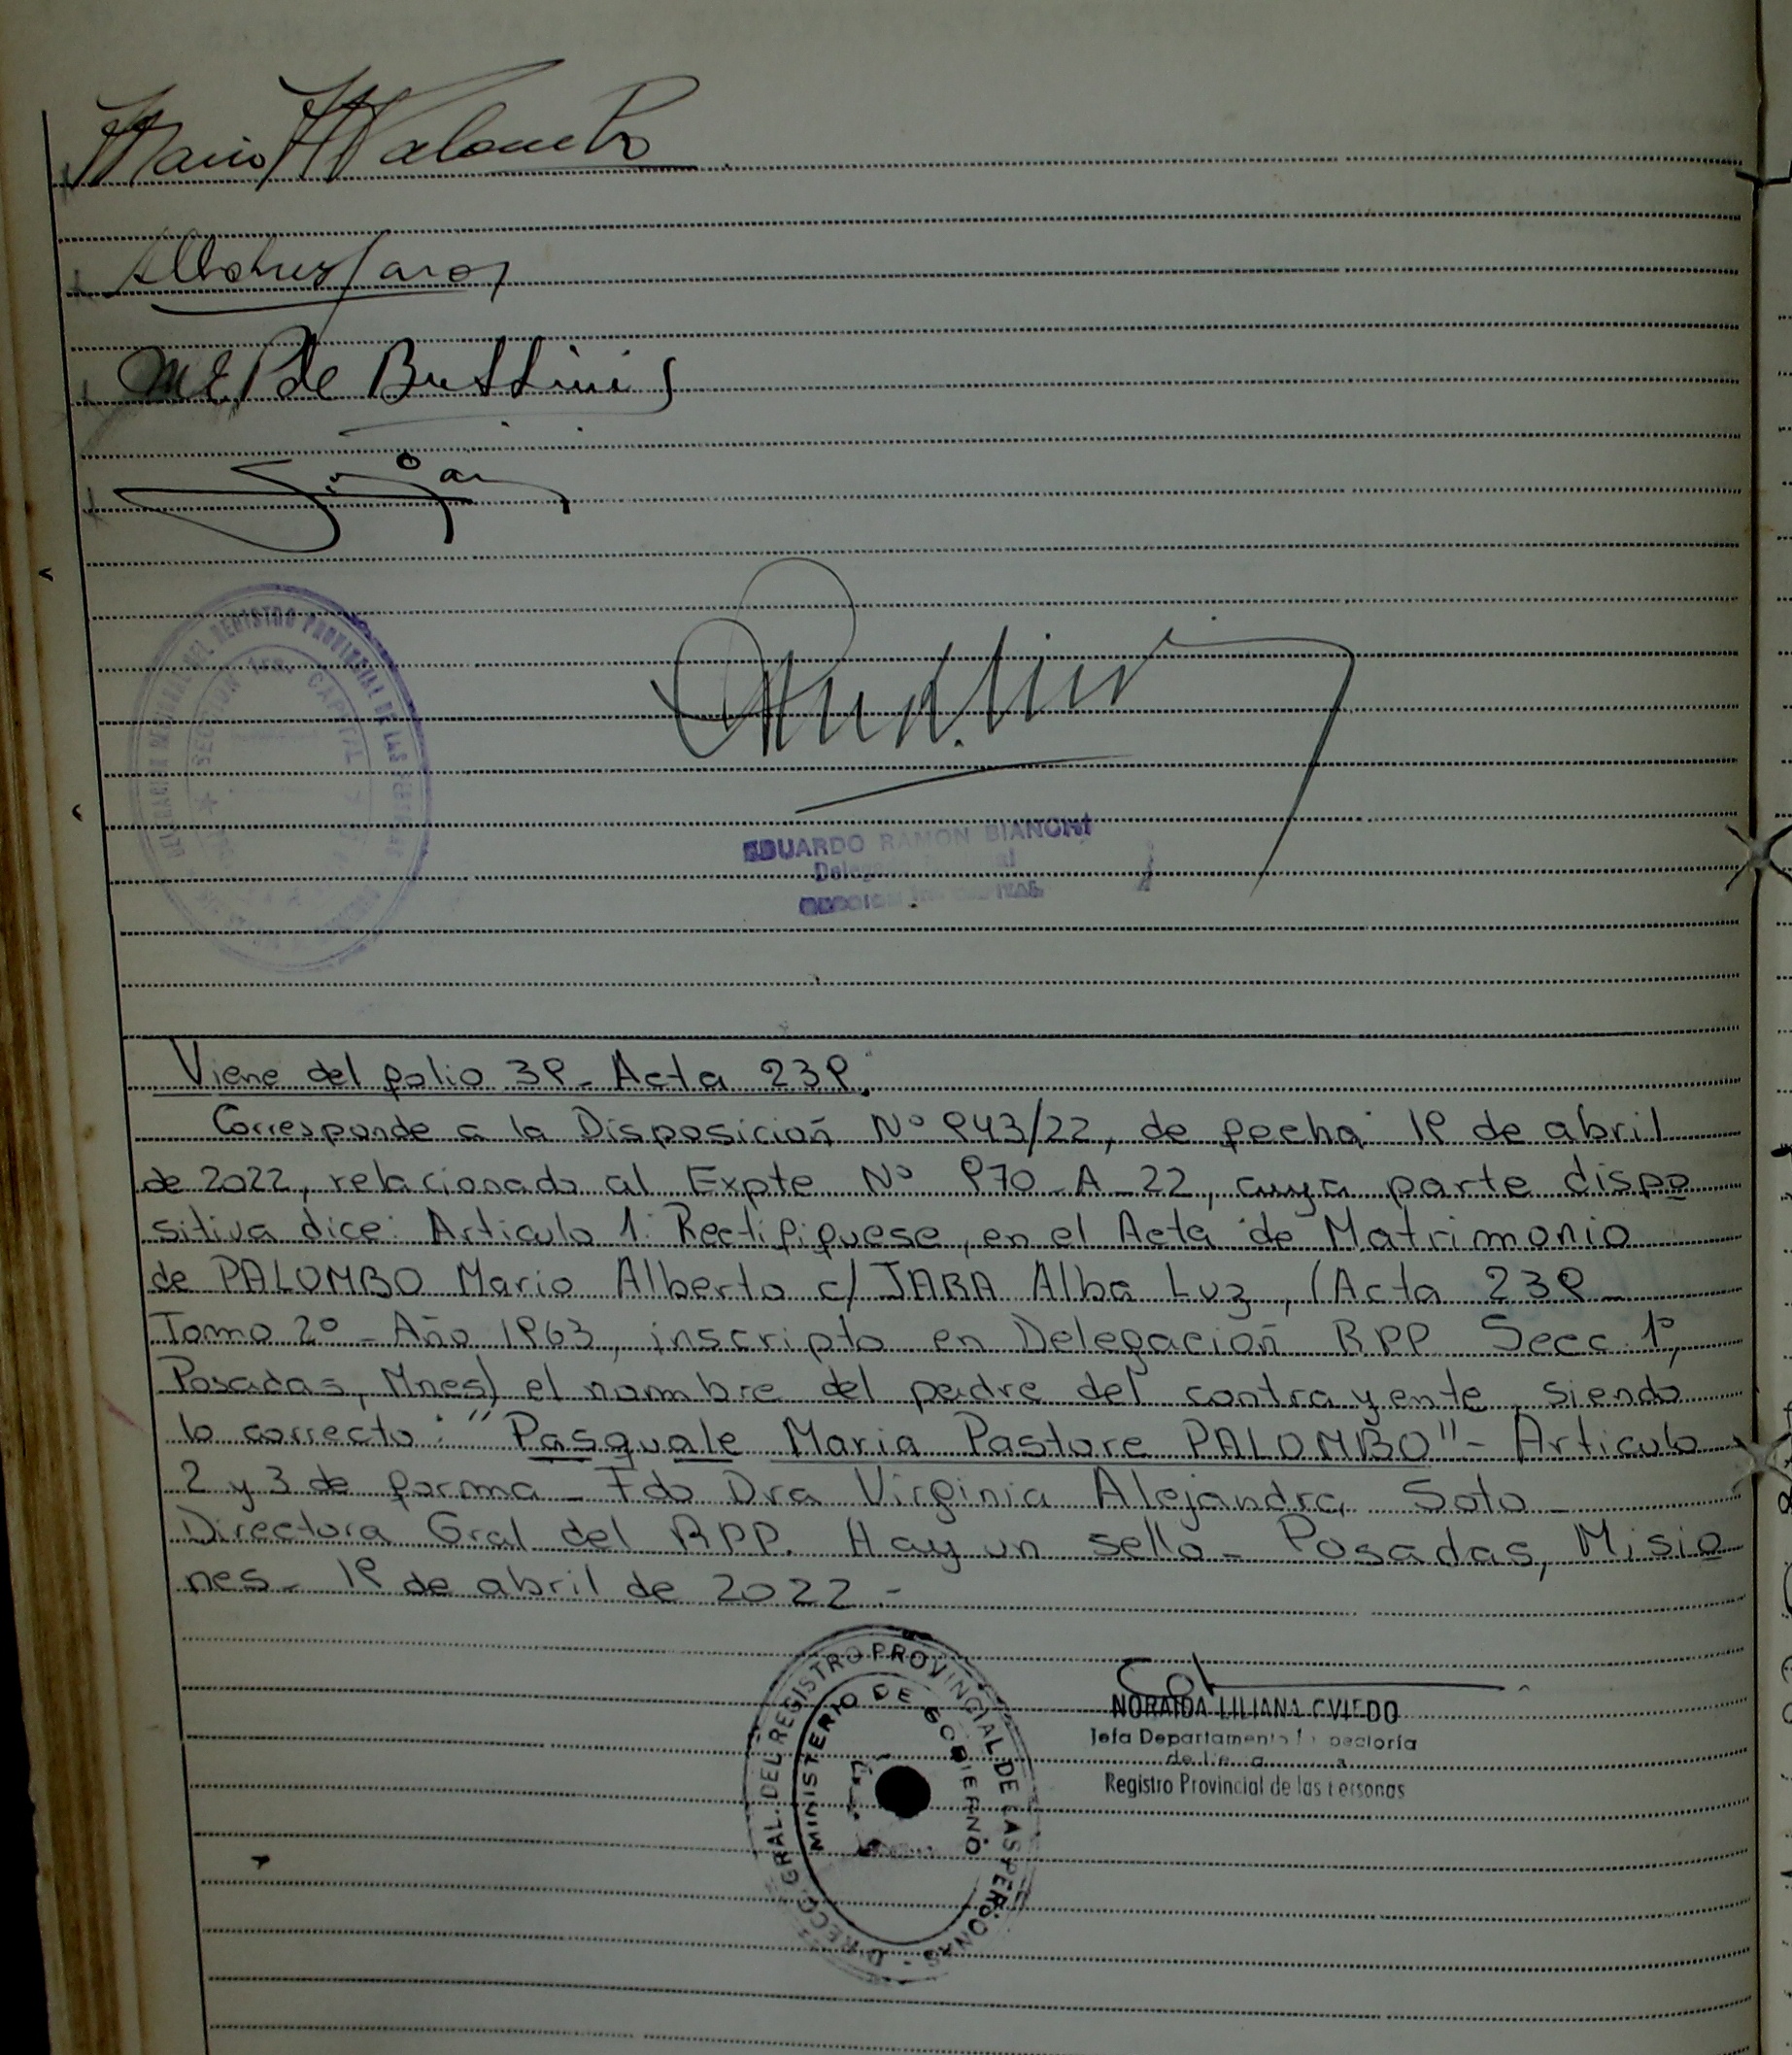 Mario A Palombo
Alba Luz Jara
M E P de Bustinis
EDUARDO RAMON BIANCHI
DEL REGISTRO PROVINCIAL DE LAS
SECCION 1ra. CAPITAL
Viene del folio 39 - Acta 239.
Corresponde a la Disposición Nº 943/22, de fecha 19 de abril
de 2022, relacionado al Expte Nº 970-A-22, cuya parte dispo
sitiva dice: Articulo 1: Rectifiquese, en el Acta de Matrimonio
de PALOMBO Mario Alberto c/ JARA Alba Luz, (Acta 239 -
Tomo 2º - Año 1963, inscripto en Delegación RPP Secc 1º,
Posadas, Mnes) el nombre del padre del contrayente, siendo
lo correcto: "Pasquale Maria Pastore PALOMBO" - Articulo
2 y 3 de forma - Fdo Dra Virginia Alejandra Soto -
Directora Gral del RPP. Hay un sello - Posadas, Misio
nes - 19 de abril de 2022 -
DIRECC. GRAL. DEL REGISTRO PROVINCIAL DE LAS PERSONAS
MINISTERIO DE GOBIERNO
NORAIDA LILIANA OVIEDO
Jefa Departamento Inspectoría
Registro Provincial de las Personas